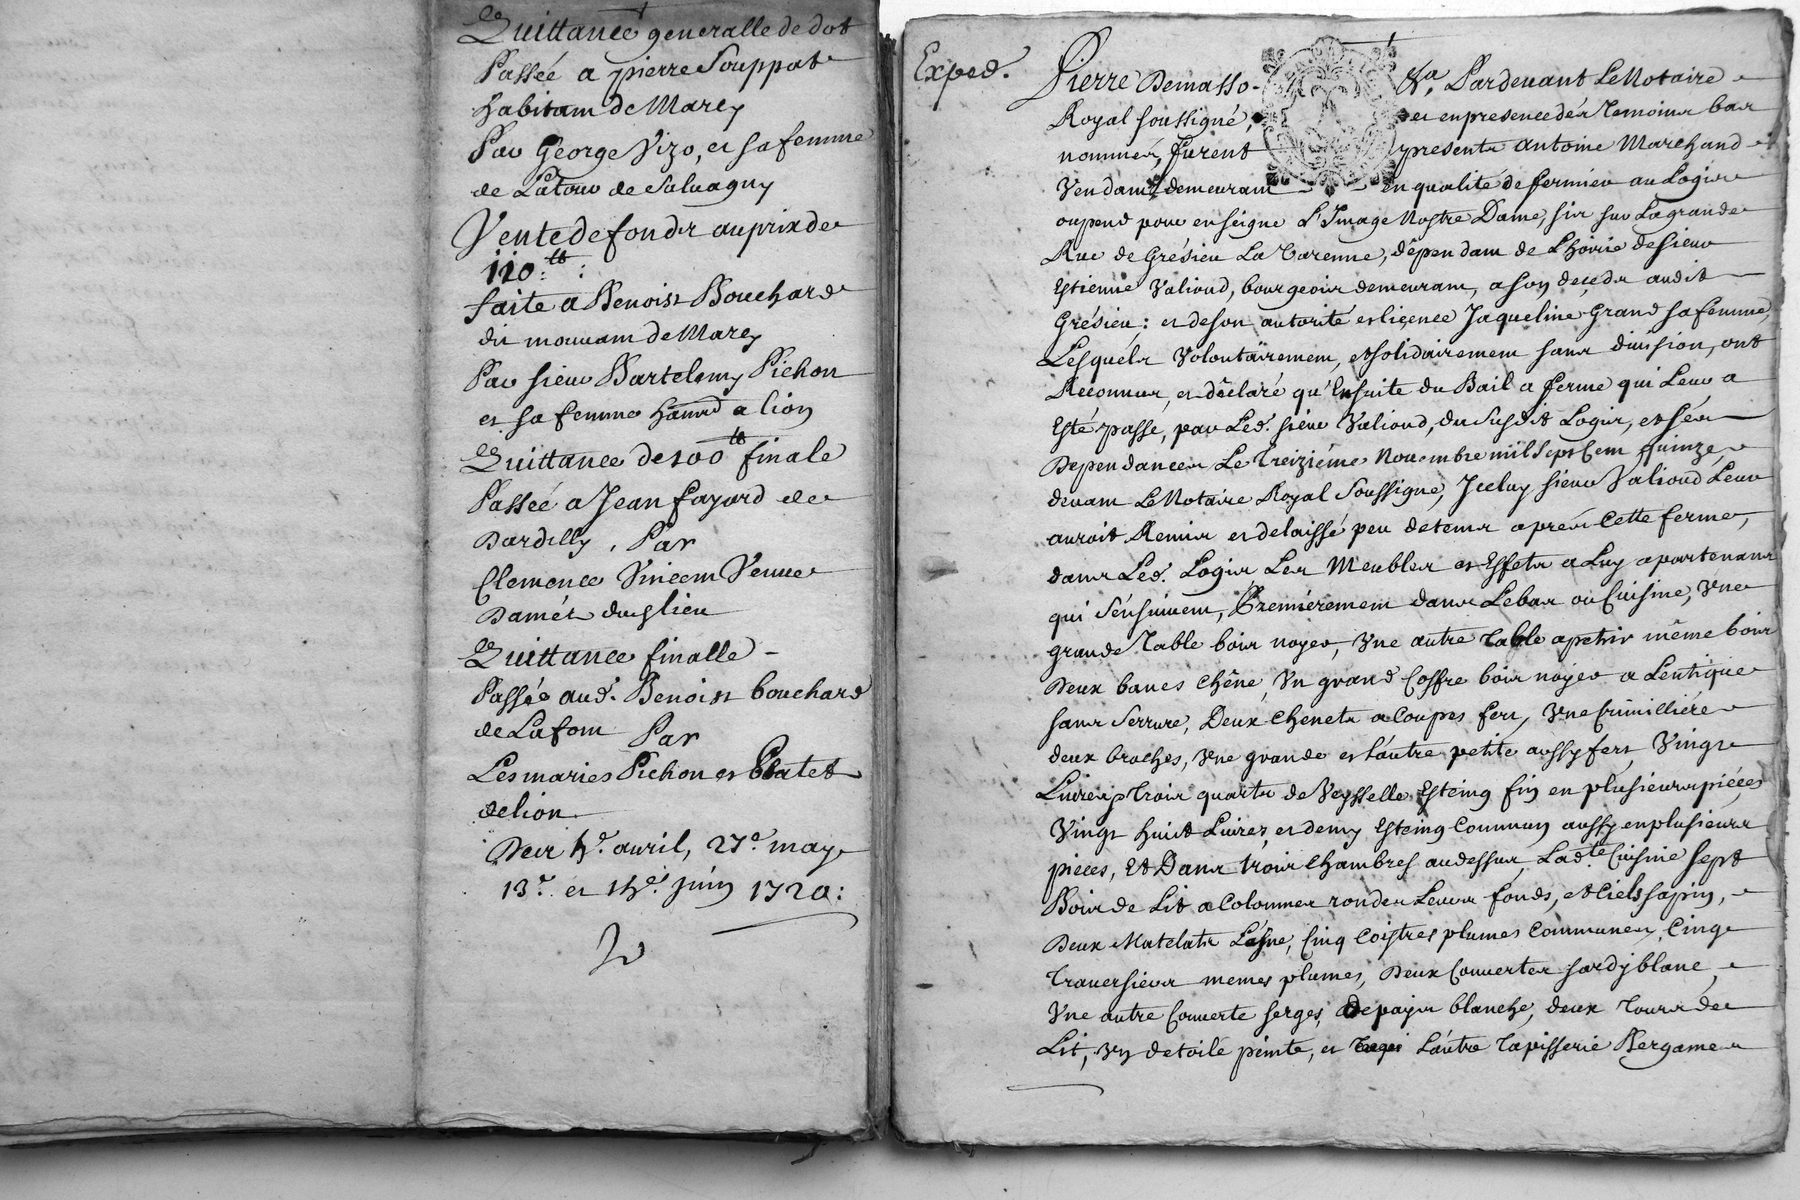 Quittance generalle de dot
Passée a pierre Souppat
habitant de Marcy
Par George Vizo, et sa femme
de Latour de Salvagny
Vente de fonds au prix de
110 ₶ :
faite a Benoist Bouchard
du mouvant de Marcy
Par sieur Bartelemy Pichon
et sa femme a lion
Quittance de 100 ₶ finale
Passée a Jean fayard de
Dardilly, Par
Clemence Vincent Veuve
Damét dud lieu
Quittance finalle -
Passée aud. Benoist bouchard
de Lafont Par
Les maries Pichon et Chatet
de lion
Des avril, 27e may
13e et juin 1720 :
Exped. Pierre Demasso- &a, Pardevant Le Notaire
Royal soussigné, et en presence des temoins bas
nommés, furent presents antoine Marchand
Vendant demeurant en qualité de fermier au Logis
ou pend pour enseigne L'Image Nostre Dame, sis sur La grande
Rue de Grésieu La Varenne, dépendant de L'hoirie de sieur
Estienne Valioud, bourgeois demeurant, a son decéds audit
Grésieu : et de son autorité et licence Jaqueline Grand sa femme,
Lesquéls Volontairement, et solidairement sans division, ont
Reconnus, et déclaré qu'Ensuite du Bail a ferme qui Leur a
Esté passe, par Led. sieur Valioud, du susdit Logis, et sés
Dependances Le Treizième Novembre mil sept Cent quinze,
devant Le Notaire Royal Soussigné, Iceluy sieur Valioud Leur
auroit Remis et delaissé peu de tems aprés Cette ferme,
dans Led. Logis Les Meubles et Effets a Luy apartenans
qui s'énsuivent, Premièrement dans Le bas ou Cuisine, Une
grande Table bois noyer, Une autre table a petrir même bois
Deux bancs Chêne, Un grand Coffre bois noyer a Lentique
sans serrure, Deux Chenets a Coupes fer, Une Crimilliére
deux broches, Une grande et L'autre petite aussy fert Vingt
Livres trois quarts de Veysselle Esteing fin en plusieurs piéces
Vingt huit Livres, et demy Esteing Commun aussy en plusieurs
pieces, Et Dans trois Chambres au dessus Ladte Cuisine sept
Bois de Lit a Colomnes rondes Leurs fonds, et Ciels sapin,
Deux Matelats Laine, Cinq Coistres plumes Communes, Cinq
traversiers memes plumes, Deux Couvertes sardy blanc,
Une autre Couverte serges, de pays blanche, deux tours de
Lit, Un de toile peinte, et L'autre tapisserie Bergame